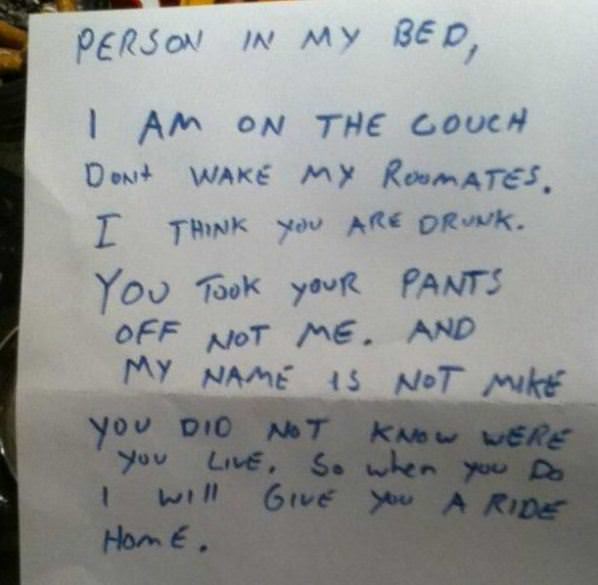 PERSON IN MY BED,
I AM ON THE COUCH
DONt WAKE MY ROOMATES.
I THINK YOU ARE DRUNK.
YOU TOOK YOUR PANTS
OFF NOT ME. AND
MY NAME IS NOT MIKE
YOU DID NOT KNOW WERE
YOU LIVE. So when you Do
I will GIVE YOU A RIDE
HOME.